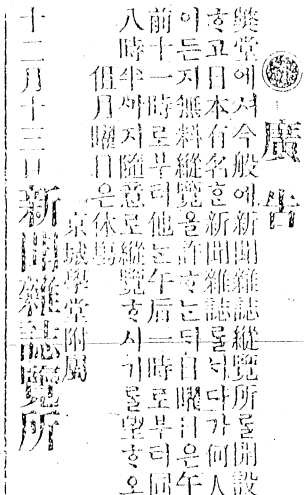 廣告
弊堂에셔今般에新聞雜誌縱覽所를開設
ᄒᆞ고日本有名ᄒᆞᆫ新聞雜誌를너다가何人
이든지無料縱覽을許ᄒᆞᄂᆞᆫ되日曜日은午
前十一時로부터他ᄂᆞᆫ午后一時로부터同
八時半ᄭᆞ지隨意로縱覽ᄒᆞ시기를望ᄒᆞ오
但月曜日은休場
京城學堂附屬
十二月十三日 新聞雜誌覽所